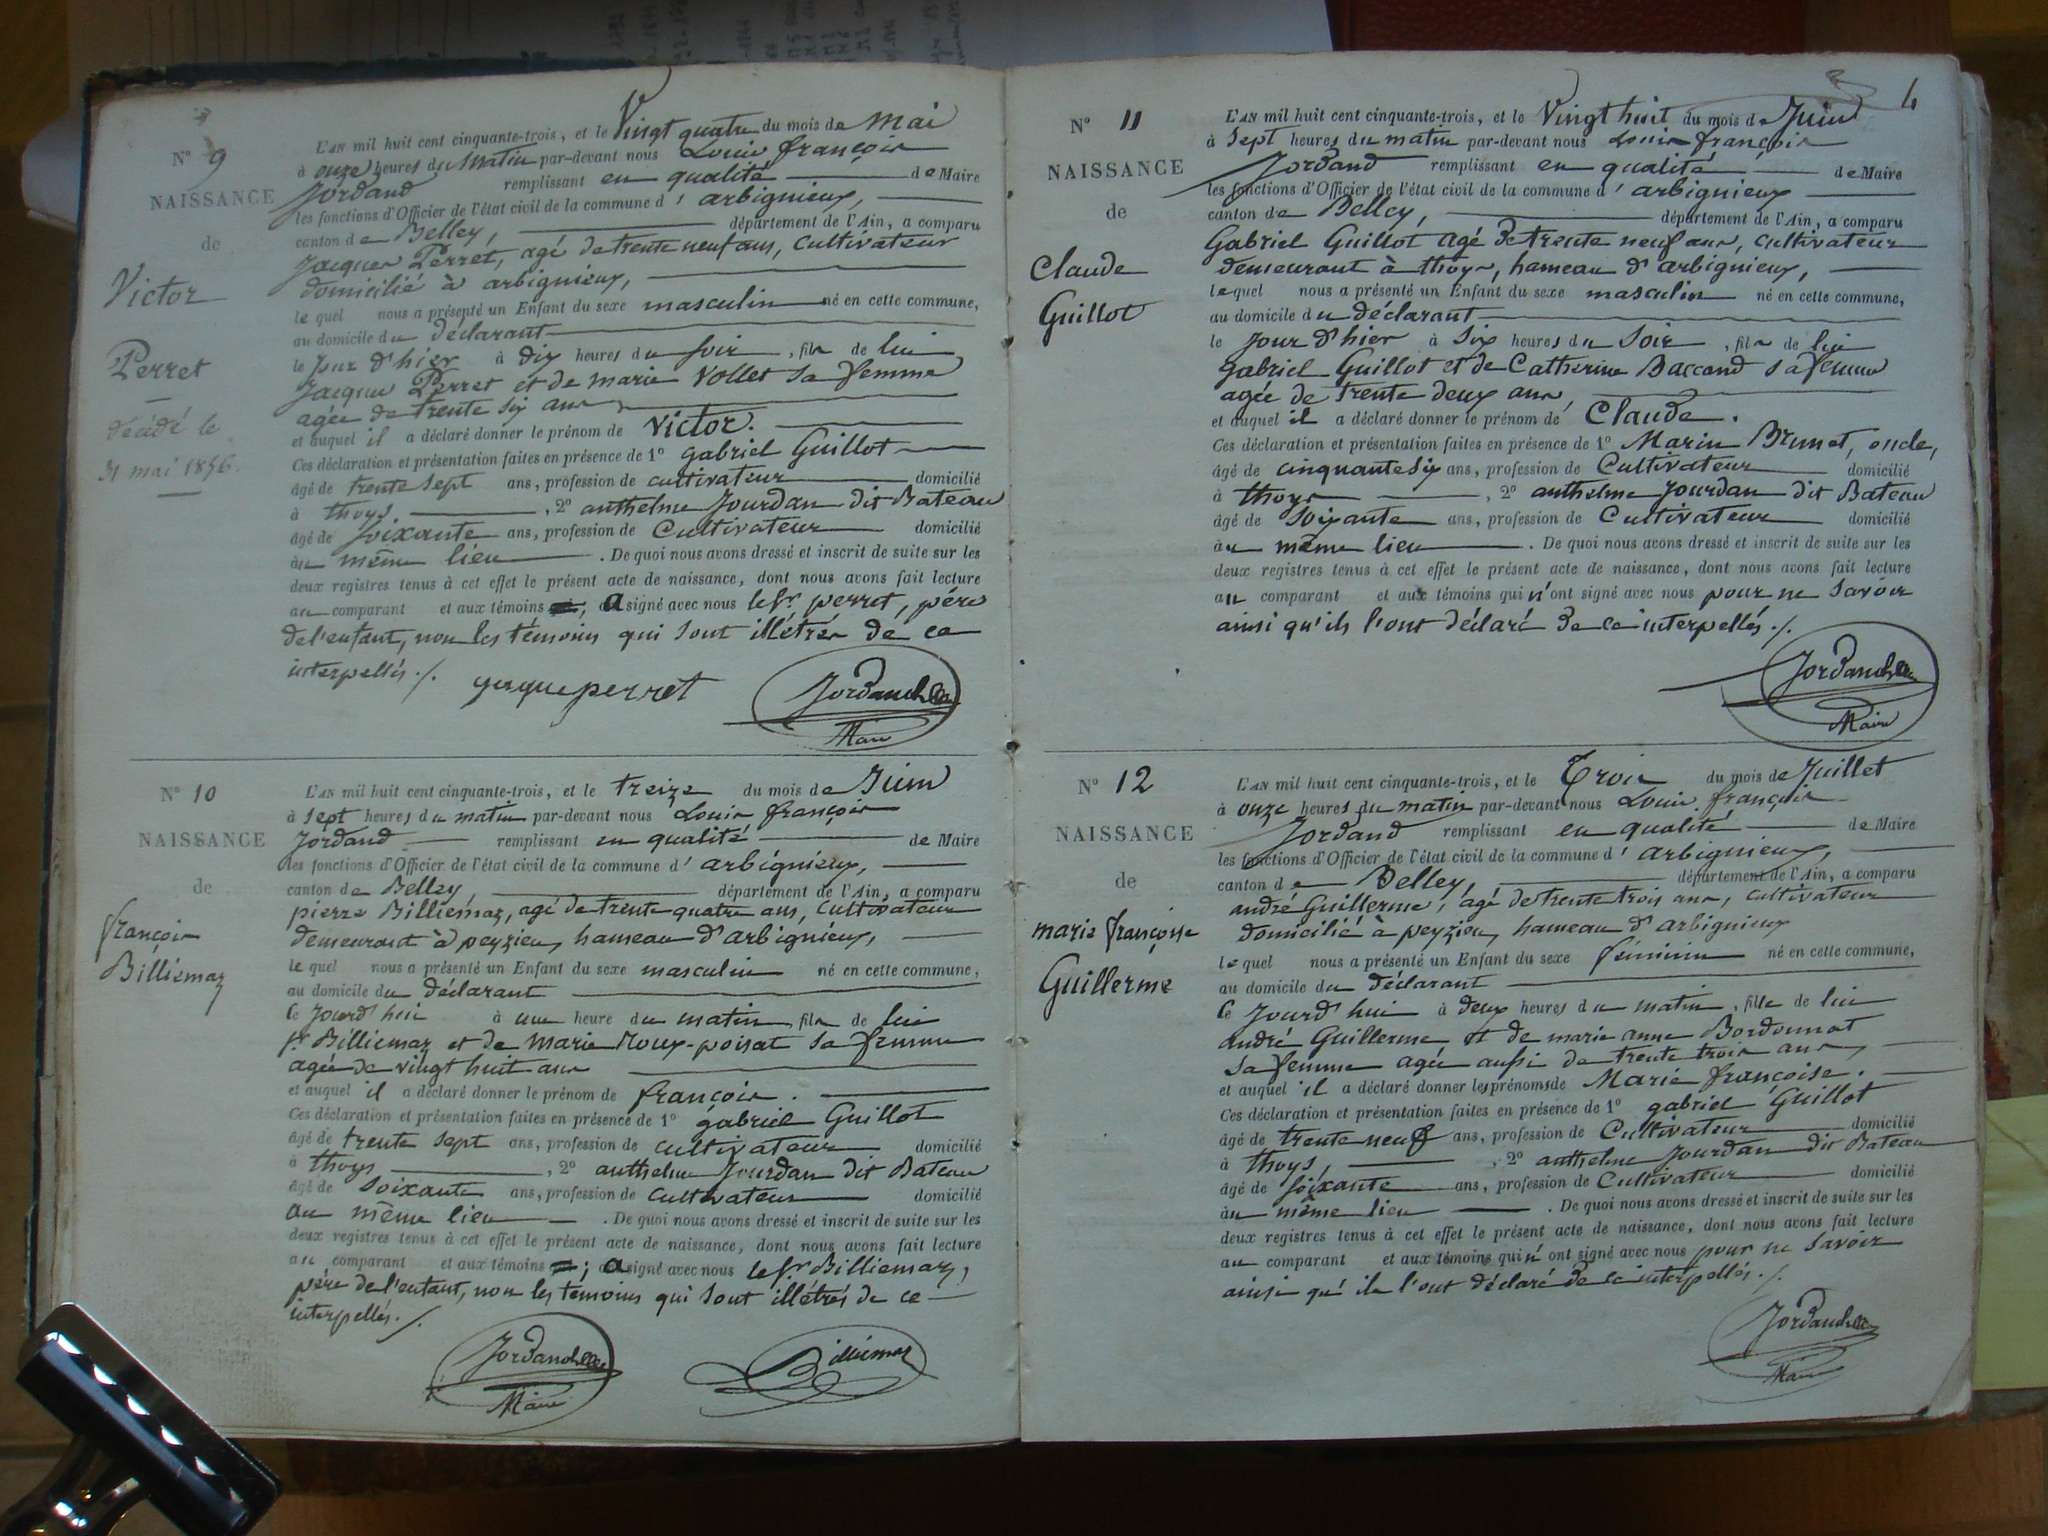 N° 9
NAISSANCE
de
Victor
Perret
décédé le
31 mai 1856.
L'AN mil huit cent cinquante-trois, et le Vingt quatre du mois de Mai
à onze heures du matin par-devant nous Louis françois
Jordand remplissant en qualité de Maire
les fonctions d'Officier de l'état civil de la commune d'arbignieux,
canton de Belley, département de l'Ain, a comparu
Jacques Perret, agé de trente neuf ans, cultivateur
domicilié à arbignieux,
le quel nous a présenté un Enfant du sexe masculin né en cette commune,
au domicile du déclarant
le jour d'hier à dix heures du soir, fils de lui
Jacques Perret et de marie Vollet sa femme
agée de trente six ans
et auquel il a déclaré donner le prénom de Victor.
Ces déclaration et présentation faites en présence de 1° gabriel Guillot
âgé de trente sept ans, profession de cultivateur domicilié
à thoys, 2° anthelme Jourdan dit Bateau
âgé de soixante ans, profession de Cultivateur domicilié
au même lieu. De quoi nous avons dressé et inscrit de suite sur les
deux registres tenus à cet effet le présent acte de naissance, dont nous avons fait lecture
au comparant et aux témoins; a signé avec nous le sr perret, père
de l'enfant, non les témoins qui sont illétrés de ce
interpellés ./.
jaque perret
Jordand
Maire
N° 10
NAISSANCE
de
françois
Billiemaz
L'AN mil huit cent cinquante-trois, et le treize du mois de Juin
à sept heures du matin par-devant nous Louis françois
Jordand remplissant en qualité de Maire
les fonctions d'Officier de l'état civil de la commune d'arbignieux,
canton de Belley, département de l'Ain, a comparu
pierre Billiemaz, agé de trente quatre ans, cultivateur
demeurant à peyzieu, hameau d'arbignieux,
le quel nous a présenté un Enfant du sexe masculin né en cette commune,
au domicile du déclarant
ce jourd'hui à une heure du matin, fils de lui
sr Billiemaz et de Marie Roux-poisat sa femme
agée de vingt huit ans
et auquel il a déclaré donner le prénom de françois.
Ces déclaration et présentation faites en présence de 1° gabriel Guillot
âgé de trente sept ans, profession de cultivateur domicilié
à thoys, 2° anthelme Jourdan dit Bateau
âgé de soixante ans, profession de cultivateur domicilié
au même lieu. De quoi nous avons dressé et inscrit de suite sur les
deux registres tenus à cet effet le présent acte de naissance, dont nous avons fait lecture
au comparant et aux témoins; a signé avec nous le sr Billiemaz,
père de l'enfant, non les témoins qui sont illétrés de ce
interpellés ./.
Jordand
Maire
Billiémaz
4
N° 11
NAISSANCE
de
Claude
Guillot
L'AN mil huit cent cinquante-trois, et le Vingt huit du mois de Juin
à sept heures du matin par-devant nous Louis françois
Jordand remplissant en qualité de Maire
les fonctions d'Officier de l'état civil de la commune d'arbignieux
canton de Belley, département de l'Ain, a comparu
Gabriel Guillot agé de trente neuf ans, cultivateur
demeurant à thoys, hameau d'arbignieux,
le quel nous a présenté un Enfant du sexe masculin né en cette commune,
au domicile du déclarant
le jour d'hier à six heures du soir, fils de lui
Gabriel Guillot et de Catherine Baccand sa femme
agée de trente deux ans,
et auquel il a déclaré donner le prénom de Claude.
Ces déclaration et présentation faites en présence de 1° Marin Brunet, oncle,
âgé de cinquante six ans, profession de Cultivateur domicilié
à thoys, 2° anthelme Jourdan dit Bateau
âgé de soixante ans, profession de Cultivateur domicilié
au même lieu. De quoi nous avons dressé et inscrit de suite sur les
deux registres tenus à cet effet le présent acte de naissance, dont nous avons fait lecture
au comparant et aux témoins qui n'ont signé avec nous pour ne savoir
ainsi qu'ils l'ont déclaré de ce interpellés ./.
Jordand
Maire
N° 12
NAISSANCE
de
marie françoise
Guillerme
L'AN mil huit cent cinquante-trois, et le Trois du mois de Juillet
à onze heures du matin par-devant nous Louis françois
Jordand remplissant en qualité de Maire
les fonctions d'Officier de l'état civil de la commune d'arbignieux,
canton de Belley, département de l'Ain, a comparu
andré Guillerme, agé de trente trois ans, cultivateur
domicilié à peyzieu, hameau d'arbignieux
le quel nous a présenté un Enfant du sexe féminin né en cette commune,
au domicile du déclarant
ce jourd'hui à deux heures du matin, fille de lui
andré Guillerme et de marie anne Bordonnat
sa femme agée aussi de trente trois ans,
et auquel il a déclaré donner les prénoms de Marie françoise.
Ces déclaration et présentation faites en présence de 1° gabriel Guillot
âgé de trente neuf ans, profession de Cultivateur domicilié
à thoys, 2° anthelme Jourdan dit Bateau
âgé de soixante ans, profession de Cultivateur domicilié
au même lieu. De quoi nous avons dressé et inscrit de suite sur les
deux registres tenus à cet effet le présent acte de naissance, dont nous avons fait lecture
au comparant et aux témoins qui n'ont signé avec nous pour ne savoir
ainsi qu'ils l'ont déclaré de ce interpellés ./.
Jordand
Maire